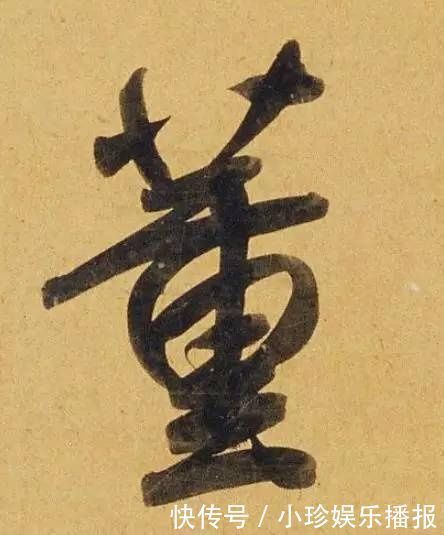 董
快传号 / 小珍娱乐播报